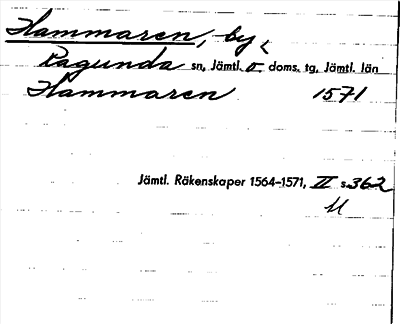 Hammaren, by
Ragunda sn, Jämtl. ö doms. tg, Jämtl. län
Hammaren 1571
Jämtl. Räkenskaper 1564-1571, II s. 362